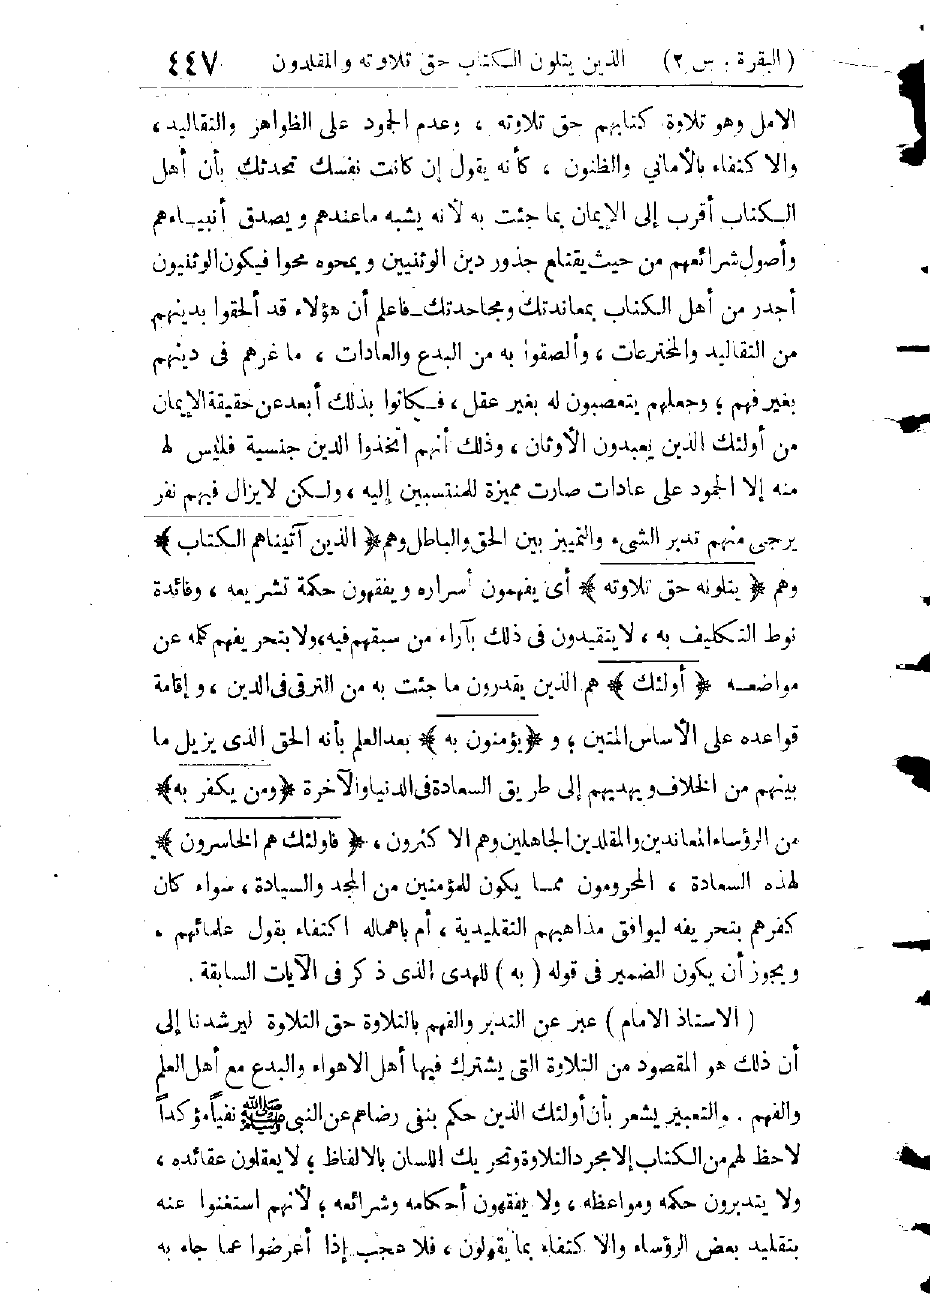 ( البقرة . س ٢ ) الذين يتلون الكتاب حق تلاوته والمقلدون ٤٤٧
الامل وهو تلاوة كتابهم حق تلاوته ، وعدم الجمود على الظواهر والتقاليد ،
والاكتفاء بالأماني والظنون ، كأنه يقول إن كانت نفسك تحدثك بأن أهل
الكتاب أقرب إلى الإيمان بما جئت به لأنه يشبه ماعندهم ويصدق أنبياءهم
وأصول شرائعهم من حيث يقتلع جذور دين الوثنيين ويمحوه محوا فيكون الوثنيون
أجدر من أهل الكتاب بمعاندتك ومجاحدتك ــ فاعلم أن هؤلاء قد ألحقوا بدينهم
من التقاليد والمخترعات ، وألصقوا به من البدع والعادات ، ما غرهم فى دينهم
بغير فهم ؛ وجعلهم يتعصبون له بغير عقل ، فكانوا بذلك أبعد عن حقيقة الإيمان
من أولئك الذين يعبدون الأوثان ، وذلك أنهم اتخذوا الدين جنسية فليس لهم
منه إلا الجمود على عادات صارت مميزة للمنتسبين إليه ، ولكن لايزال فيهم نفر
يرجى منهم تدبر الشيء والتمييز بين الحق والباطل وهم ﴿ الذين آتيناهم الكتاب ﴾
وهم ﴿ يتلونه حق تلاوته ﴾ أى يفهمون أسراره ويفقهون حكمة تشريعه ، وفائدة
نوط التكليف به ، لايتقيدون فى ذلك بآراء من سبقهم فيه، ولا بتحريفهم كلمه عن
مواضعه ﴿ أولئك ﴾ هم الذين يقدرون ما جئت به من الترقى فى الدين ، وإقامة
قواعده على الأساس المتين ؛ و ﴿ يؤمنون به ﴾ بعد العلم بأنه الحق الذى يزيل ما
بينهم من الخلاف ويهديهم إلى طريق السعادة فى الدنيا والآخرة ﴿ ومن يكفر به ﴾
من الرؤساء المعاندين والمقلدين الجاهلين وهم الاكثرون ، ﴿ فاولئك هم الخاسرون ﴾
لهذه السعادة ، المحرومون مما يكون للمؤمنين من المجد والسيادة ، سواء كان
كفرهم بتحريفه ليوافق مذاهبهم التقليدية ، أم باهماله اكتفاء بقول علمائهم .
ويجوز أن يكون الضمير فى قوله ( به ) للهدى الذى ذكر فى الآيات السابقة .
( الاستاذ الامام ) عبر عن التدبر والفهم بالتلاوة حق التلاوة ليرشدنا إلى
أن ذلك هو المقصود من التلاوة التى يشترك فيها أهل الاهواء والبدع مع أهل العلم
والفهم . والتعبير يشعر بأن أولئك الذين حكم بنفى رضاهم عن النبى ﷺ نفياً مؤكداً
لاحظ لهم من الكتاب إلا مجرد التلاوة وتحريك اللسان بالالفاظ ؛ لايعقلون عقائده ،
ولا يتدبرون حكمه ومواعظه ، ولا يفقهون أحكامه وشرائعه ؛ لأنهم استغنوا عنه
بتقليد بعض الرؤساء والاكتفاء بما يقولون ، فلا عجب إذا أعرضوا عما جاء به